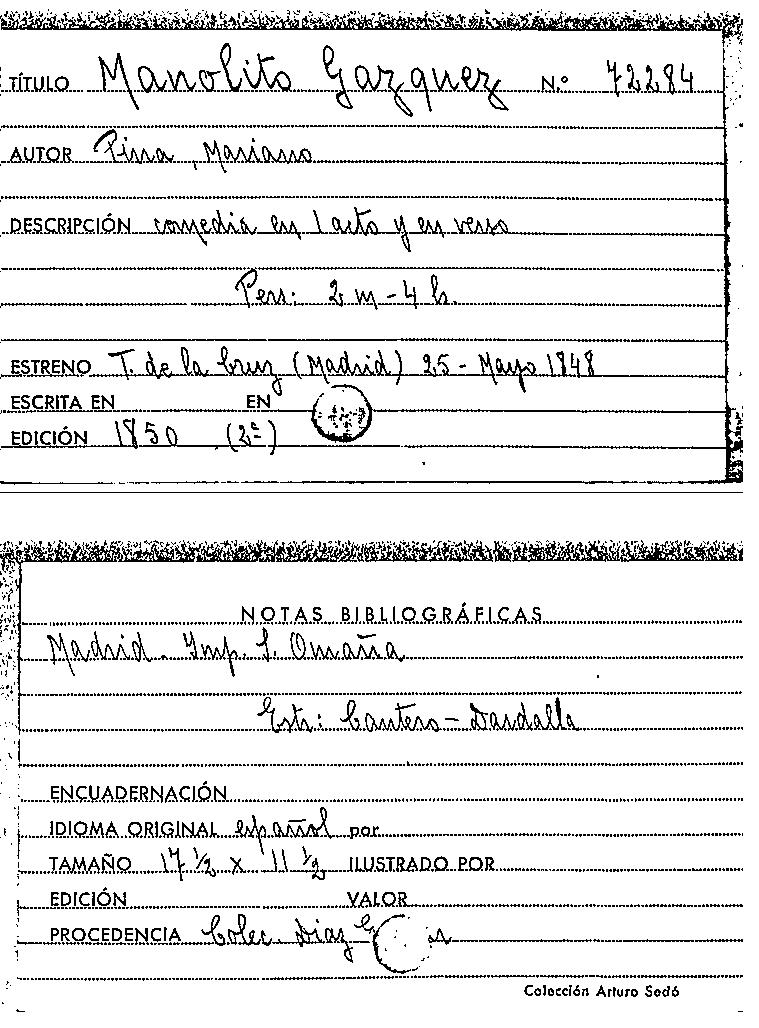 TÍTULO Manolito Gazquez N.º 72284
AUTOR Pina, Mariano
DESCRIPCIÓN comedia en 1 acto y en verso
Pers: 2 m - 4 h.
ESTRENO T. de la Cruz (Madrid) 25 - Mayo 1848
ESCRITA EN EN
EDICIÓN 1850 (2ª)
NOTAS BIBLIOGRÁFICAS
Madrid. Imp. S. Omaña
Estr: Cantero - Dardalla
ENCUADERNACIÓN
IDIOMA ORIGINAL español por
TAMAÑO 17 ½ x 11 ½ ILUSTRADO POR
EDICIÓN VALOR
PROCEDENCIA Colec. Diaz
Colección Arturo Sedó